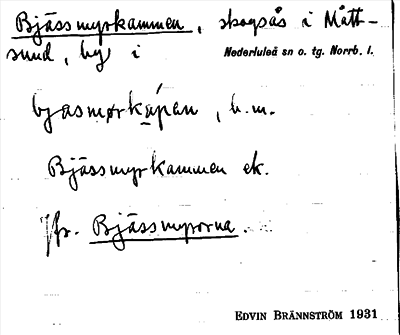 Bjässmyrkammen, skogsås i Mått-
sund, by i Nederluleå sn o. tg. Norrb. l.
bjasmørkápan, b.m.
Bjässmyrkammen ek.
Jfr. Bjässmyrorna.
EDVIN BRÄNNSTRÖM 1931